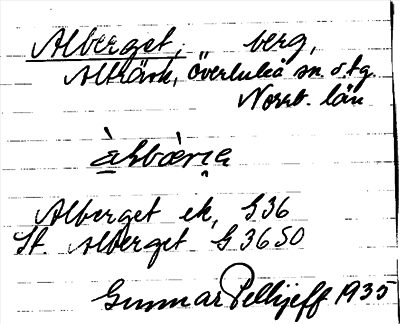 Alberget, berg,
Alträsk, Överluleå sn. o. tg.
Norrb. län
Alberget ek, G36
St. Alberget G 36 SO
Gunnar Pellijeff 1935